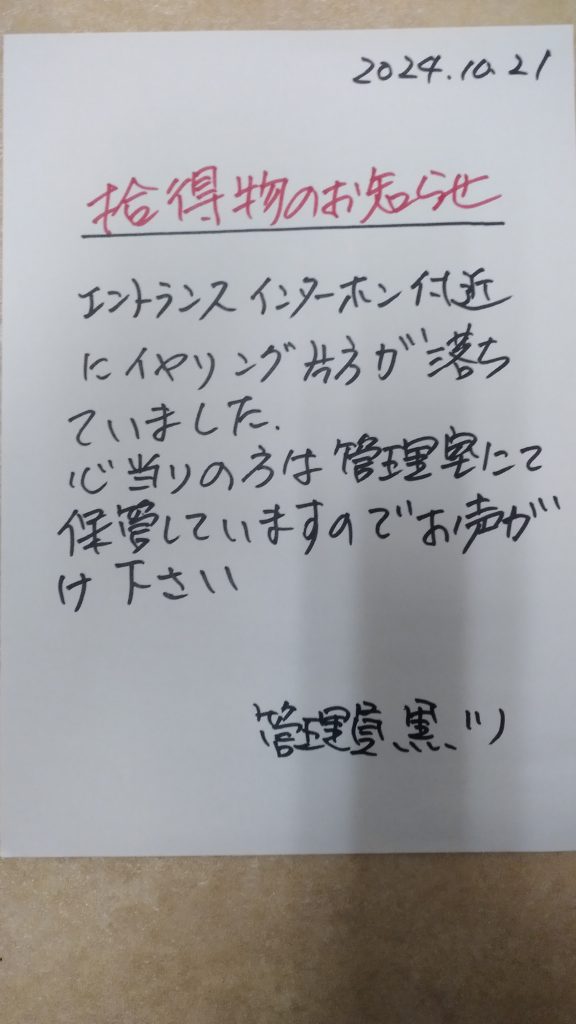 2024.10.21
拾得物のお知らせ
エントランスインターホン付近
にイヤリング片方が落ち
ていました.
心当りの方は管理室にて
保管していますのでお声が
け下さい
管理員黒川